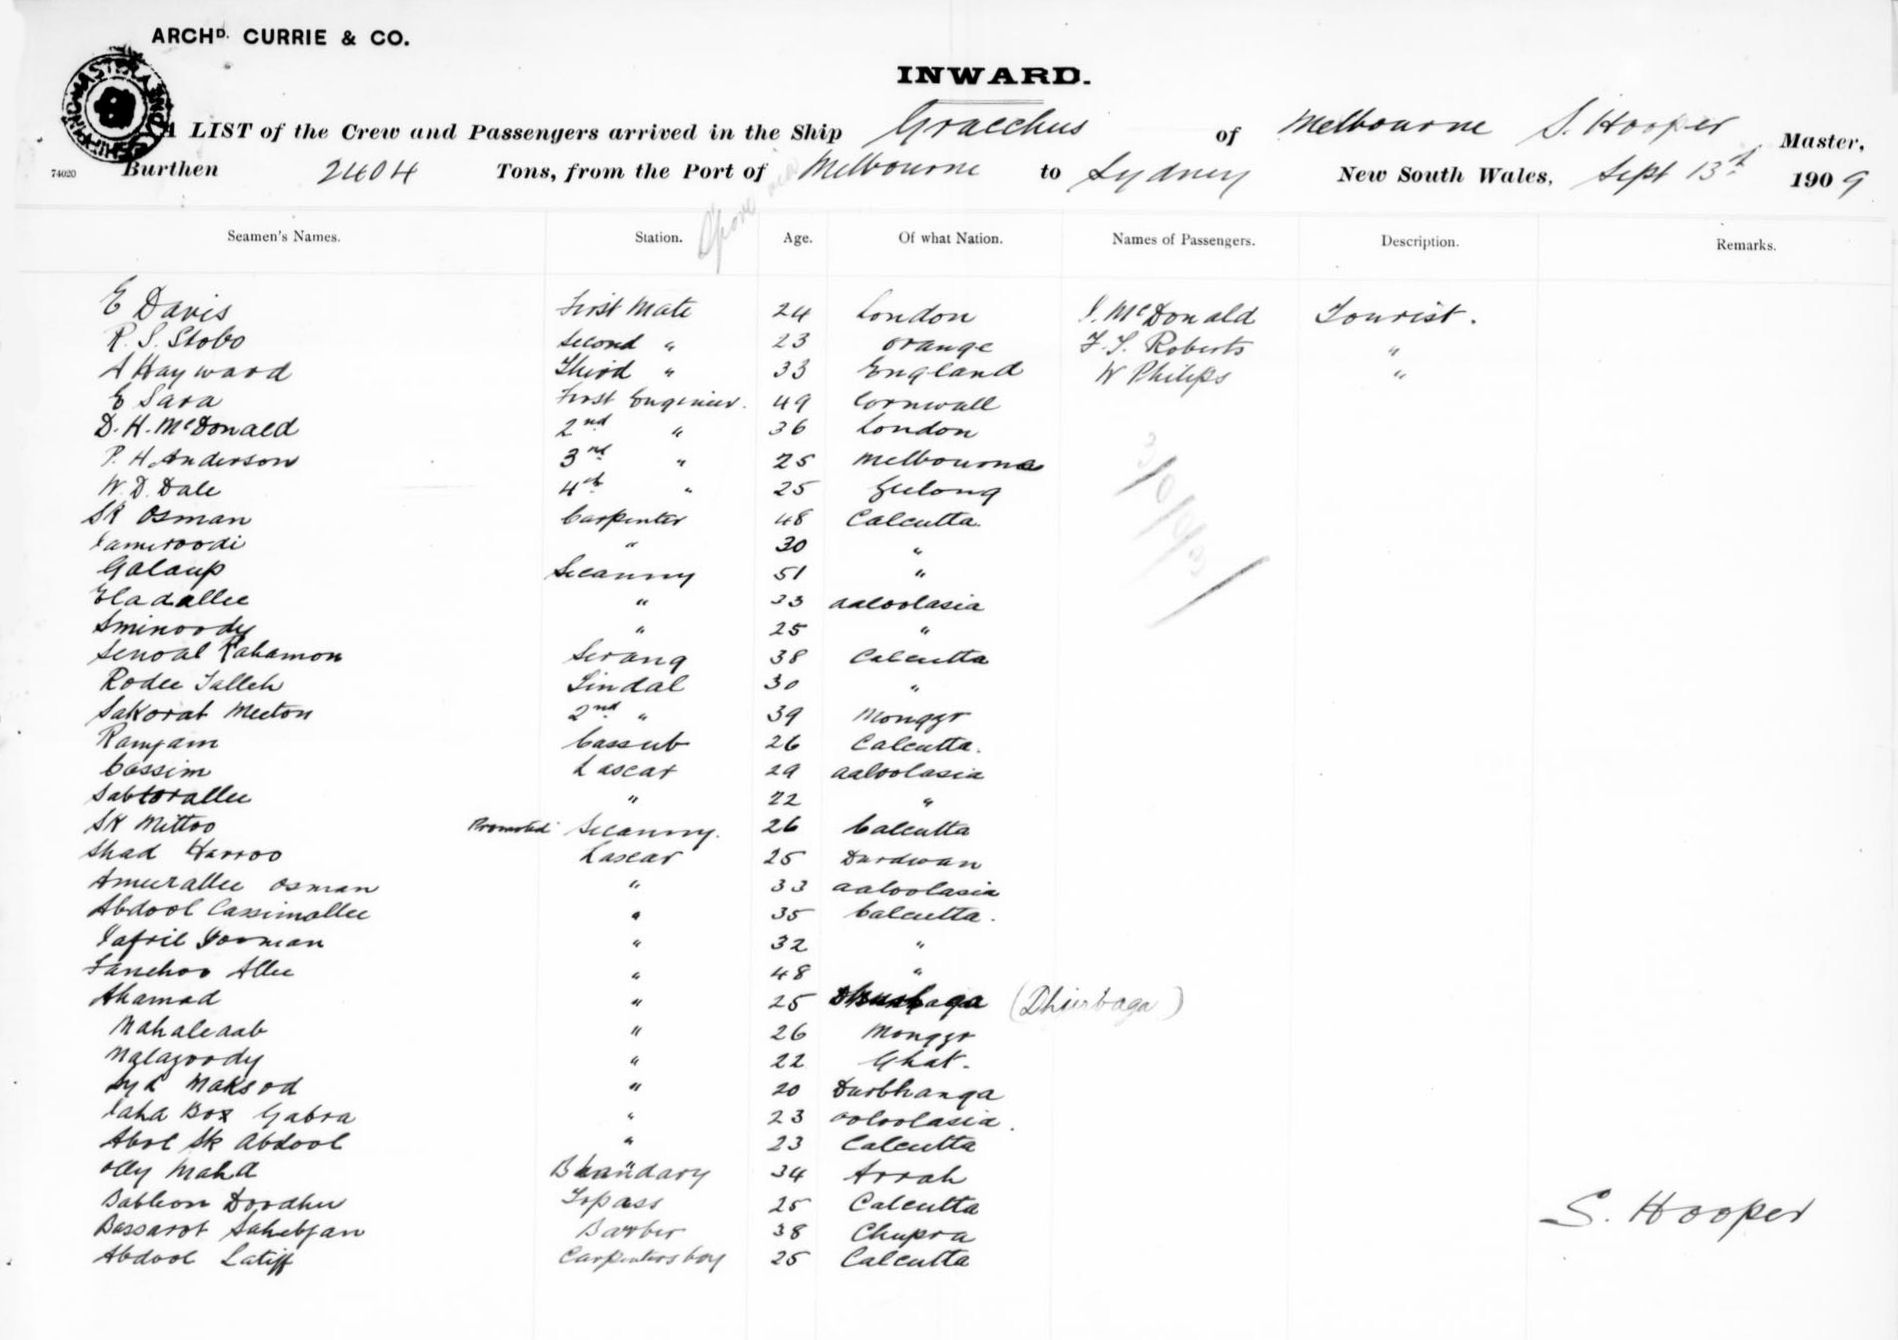 ARCHD. CURRIE & CO.
INWARD.
A LIST of the Crew and Passengers arrived in the Ship Gracchus of Melbourne S. Hooper Master,
74020 Burthen 2404 Tons, from the Port of Melbourne to Sydney New South Wales, Sept 13th 1909
Seamen's Names. Station. Age. Of what Nation. Names of Passengers. Description. Remarks.
E Davis First Mate 24 London J. McDonald Tourist.
R. S. Stobo Second " 23 Orange F. S. Roberts "
A Hayward Third " 33 England W Philips "
E Sara First Engineer. 49 Cornwall
D. H. McDonald 2nd " 36 London
P. H. Anderson 3rd " 25 Melbourne
W. D. Dale 4th " 25 Geelong
SK Osman Carpenter 48 Calcutta.
Jameroodi " 30 "
Golaup Secanny 51 "
Eladallee " 33 aaloolasia
Aminoody " 25 "
Senoal Rahamon Serang 38 Calcutta
Rodee Talleh Tindal 30 "
Sakorat Meeton 2nd " 39 Monggr
Ramjam Cassub 26 Calcutta.
Cassim Lascar 29 aaloolasia
Sabtorallee " 22 "
SK Mittoo Promoted Secanny. 26 Calcutta
Shad Harroo Lascar 25 Durdwan
Ameerallee Osman " 33 aaloolasia
Abdool Cassimallee " 35 Calcutta.
Jafril Jooman " 32 "
Fanchoo Allee " 48 "
Ahamad " 25 (Dhurbaga)
Mahaleaab " 26 Monggr
Nalagoody " 22 Ghat.
Syd Maksod " 20 Durbhanga
Jaha Box Gabra " 23 aoloolasia.
Abol Sk Abdool " 23 Calcutta
Olly Mahd Bhandary 34 Arrah
Babboon Doodhu Topass 25 Calcutta
Bassarot Sahebjan Barber 38 Chupra
S. Hooper
Abdool Latiff Carpenters boy 25 Calcutta